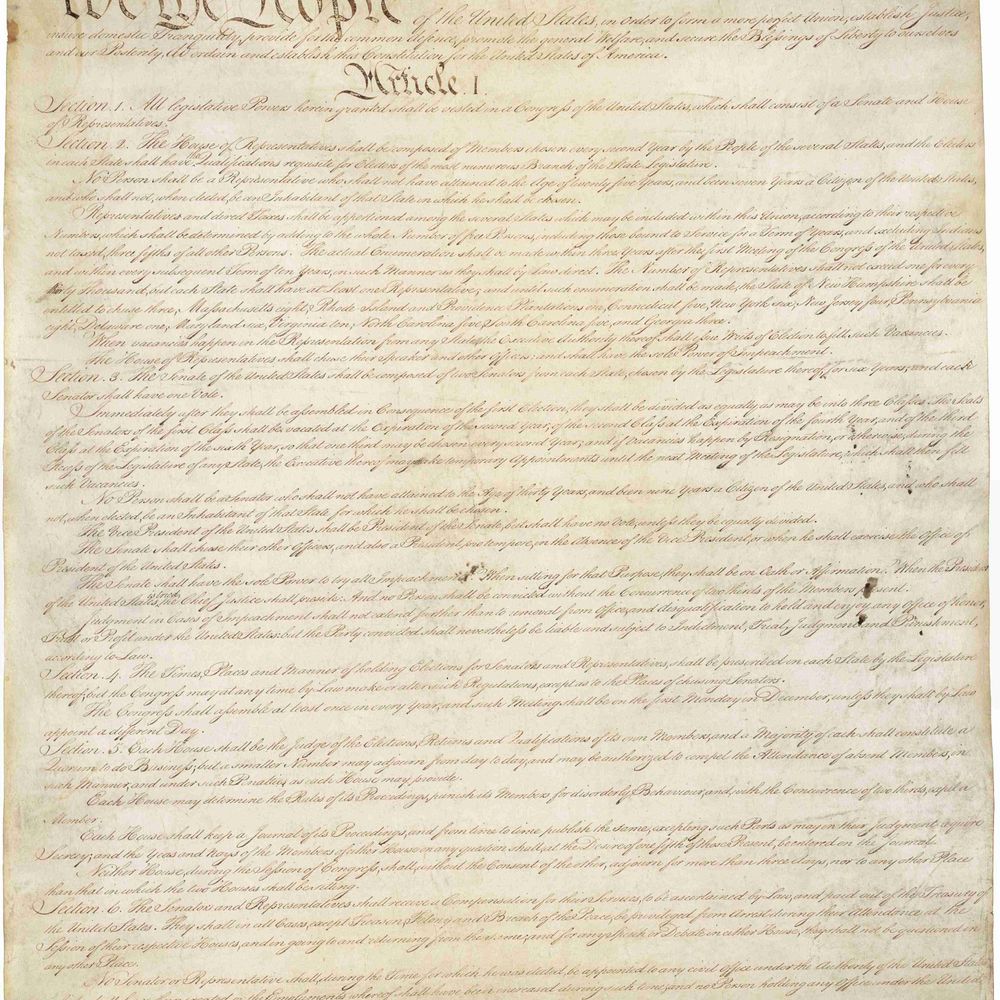 We the People of the United States, in order to form a more perfect Union, establish Justice,
insure domestic Tranquility, provide for the common defence, promote the general Welfare, and secure the Blessings of Liberty to ourselves
and our Posterity, do ordain and establish this Constitution for the United States of America.
Article. I.
Section. 1. All legislative Powers herein granted shall be vested in a Congress of the United States, which shall consist of a Senate and House
of Representatives.
Section. 2. The House of Representatives shall be composed of Members chosen every second Year by the People of the several States, and the Electors
in each State shall have the Qualifications requisite for Electors of the most numerous Branch of the State Legislature.
No Person shall be a Representative who shall not have attained to the Age of twenty five Years, and been seven Years a Citizen of the United States,
and who shall not, when elected, be an Inhabitant of that State in which he shall be chosen.
Representatives and direct Taxes shall be apportioned among the several States which may be included within this Union, according to their respective
Numbers, which shall be determined by adding to the whole Number of free Persons, including those bound to Service for a Term of Years, and excluding Indians
not taxed, three fifths of all other Persons. The actual Enumeration shall be made within three Years after the first Meeting of the Congress of the United States,
and within every subsequent Term of ten Years, in such Manner as they shall by Law direct. The Number of Representatives shall not exceed one for every
thirty Thousand, but each State shall have at Least one Representative; and until such enumeration shall be made, the State of New Hampshire shall be
entitled to chuse three, Massachusetts eight, Rhode Island and Providence Plantations one, Connecticut five, New York six, New Jersey four, Pennsylvania
eight, Delaware one, Maryland six, Virginia ten, North Carolina five, South Carolina five, and Georgia three.
When vacancies happen in the Representation from any State, the Executive Authority thereof shall issue Writs of Election to fill such Vacancies.
The House of Representatives shall chuse their Speaker and other Officers; and shall have the sole Power of Impeachment.
Section. 3. The Senate of the United States shall be composed of two Senators from each State, chosen by the Legislature thereof, for six Years; and each
Senator shall have one Vote.
Immediately after they shall be assembled in Consequence of the first Election, they shall be divided as equally as may be into three Classes. The Seats
of the Senators of the first Class shall be vacated at the Expiration of the second Year, of the second Class at the Expiration of the fourth Year, and of the third
Class at the Expiration of the sixth Year, so that one third may be chosen every second Year; and if Vacancies happen by Resignation, or otherwise, during the
Recess of the Legislature of any State, the Executive thereof may make temporary Appointments until the next Meeting of the Legislature, which shall then fill
such Vacancies.
No Person shall be a Senator who shall not have attained to the Age of thirty Years, and been nine Years a Citizen of the United States, and who shall
not, when elected, be an Inhabitant of that State for which he shall be chosen.
The Vice President of the United States shall be President of the Senate, but shall have no Vote, unless they be equally divided.
The Senate shall chuse their other Officers, and also a President pro tempore, in the Absence of the Vice President, or when he shall exercise the Office of
President of the United States.
The Senate shall have the sole Power to try all Impeachments. When sitting for that Purpose, they shall be on Oath or Affirmation. When the President
of the United States is tried, the Chief Justice shall preside: And no Person shall be convicted without the Concurrence of two thirds of the Members present.
Judgment in Cases of Impeachment shall not extend further than to removal from Office, and disqualification to hold and enjoy any Office of honor,
Trust or Profit under the United States: but the Party convicted shall nevertheless be liable and subject to Indictment, Trial, Judgment and Punishment,
according to Law.
Section. 4. The Times, Places and Manner of holding Elections for Senators and Representatives, shall be prescribed in each State by the Legislature
thereof; but the Congress may at any time by Law make or alter such Regulations, except as to the Places of chusing Senators.
The Congress shall assemble at least once in every Year, and such Meeting shall be on the first Monday in December, unless they shall by Law
appoint a different Day.
Section. 5. Each House shall be the Judge of the Elections, Returns and Qualifications of its own Members, and a Majority of each shall constitute a
Quorum to do Business; but a smaller Number may adjourn from day to day, and may be authorized to compel the Attendance of absent Members, in
such Manner, and under such Penalties as each House may provide.
Each House may determine the Rules of its Proceedings, punish its Members for disorderly Behaviour, and, with the Concurrence of two thirds, expel a
Member.
Each House shall keep a Journal of its Proceedings, and from time to time publish the same, excepting such Parts as may in their Judgment require
Secrecy; and the Yeas and Nays of the Members of either House on any question shall, at the Desire of one fifth of those Present, be entered on the Journal.
Neither House, during the Session of Congress, shall, without the Consent of the other, adjourn for more than three days, nor to any other Place
than that in which the two Houses shall be sitting.
Section. 6. The Senators and Representatives shall receive a Compensation for their Services, to be ascertained by Law, and paid out of the Treasury of
the United States. They shall in all Cases, except Treason, Felony and Breach of the Peace, be privileged from Arrest during their Attendance at the
Session of their respective Houses, and in going to and returning from the same; and for any Speech or Debate in either House, they shall not be questioned in
any other Place.
No Senator or Representative shall, during the Time for which he was elected, be appointed to any civil Office under the Authority of the United States,
which shall have been created, or the Emoluments whereof shall have been encreased during such time; and no Person holding any Office under the United